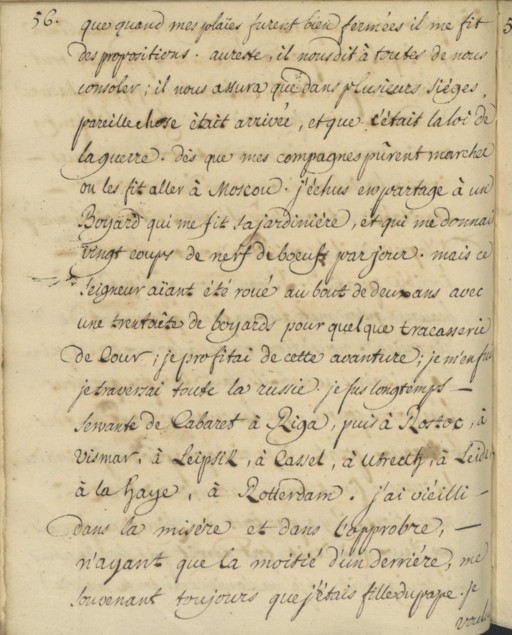 56. que quand mes plaïes furent bien fermées il me fit
des propositions. aureste, il nous dit à toutes de nous
consoler; il nous assura que dans plusieurs sièges,
pareille chose ètait arrivée, et que c'était la loi de
la guerre. dès que mes compagnes pûrent marcher
on les fit aller à Moscou. j'échus en partage à un
Boyard qui me fit sa jardinière, et qui me donnai
vingt coups de nerf de boeuf par jour. mais ce
Seigneur aïant été roué au bout de deux ans avec
une trentaine de boyards pour quelque tracasserie
de Cour; je profitai de cette avanture; je m'enfui
je traversai toute la russie. je fus longtemps —
Servante de Cabaret à Riga, puis à Rostoc, à
Vismar, à Leipsik, à Cassel, à Utrecth, à Leide
à la haye, à Rotterdam. j'ai viéilli —
dans la misére et dans l'approbre, —
n'ayant que la moitié d'un derriére, me
souvenant toujours que j'étais fille du pape. je
voulu
5